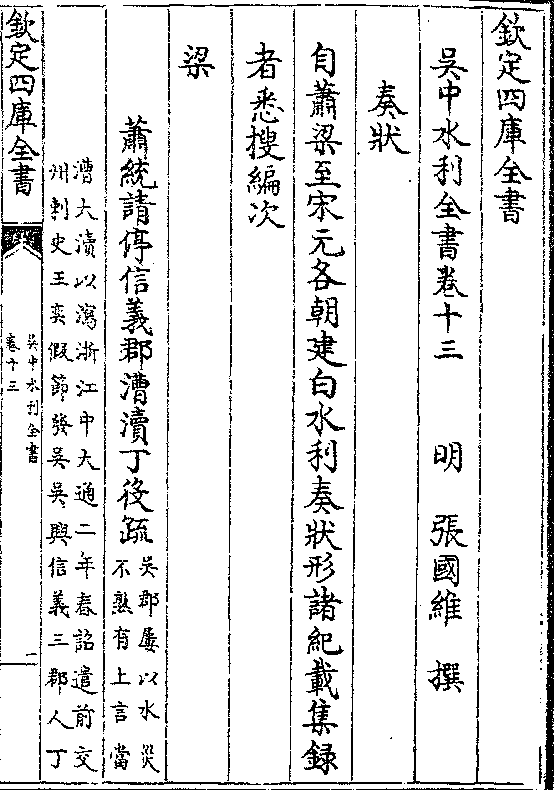 欽定四庫全書
吳中水利全書卷十三　明　張國維　撰
奏狀
自蕭梁至宋元各朝建白水利奏狀形諸紀載集錄
者悉搜編次
梁
蕭統請停信義郡漕瀆丁役疏
吳郡屢以水災
不熟有上言當
漕大瀆以瀉浙江中大通二年春詔遣前交
州刺史王奕假節發吳吳興信義三郡人丁
欽定四庫全書
吳中水利全書
卷十三
一